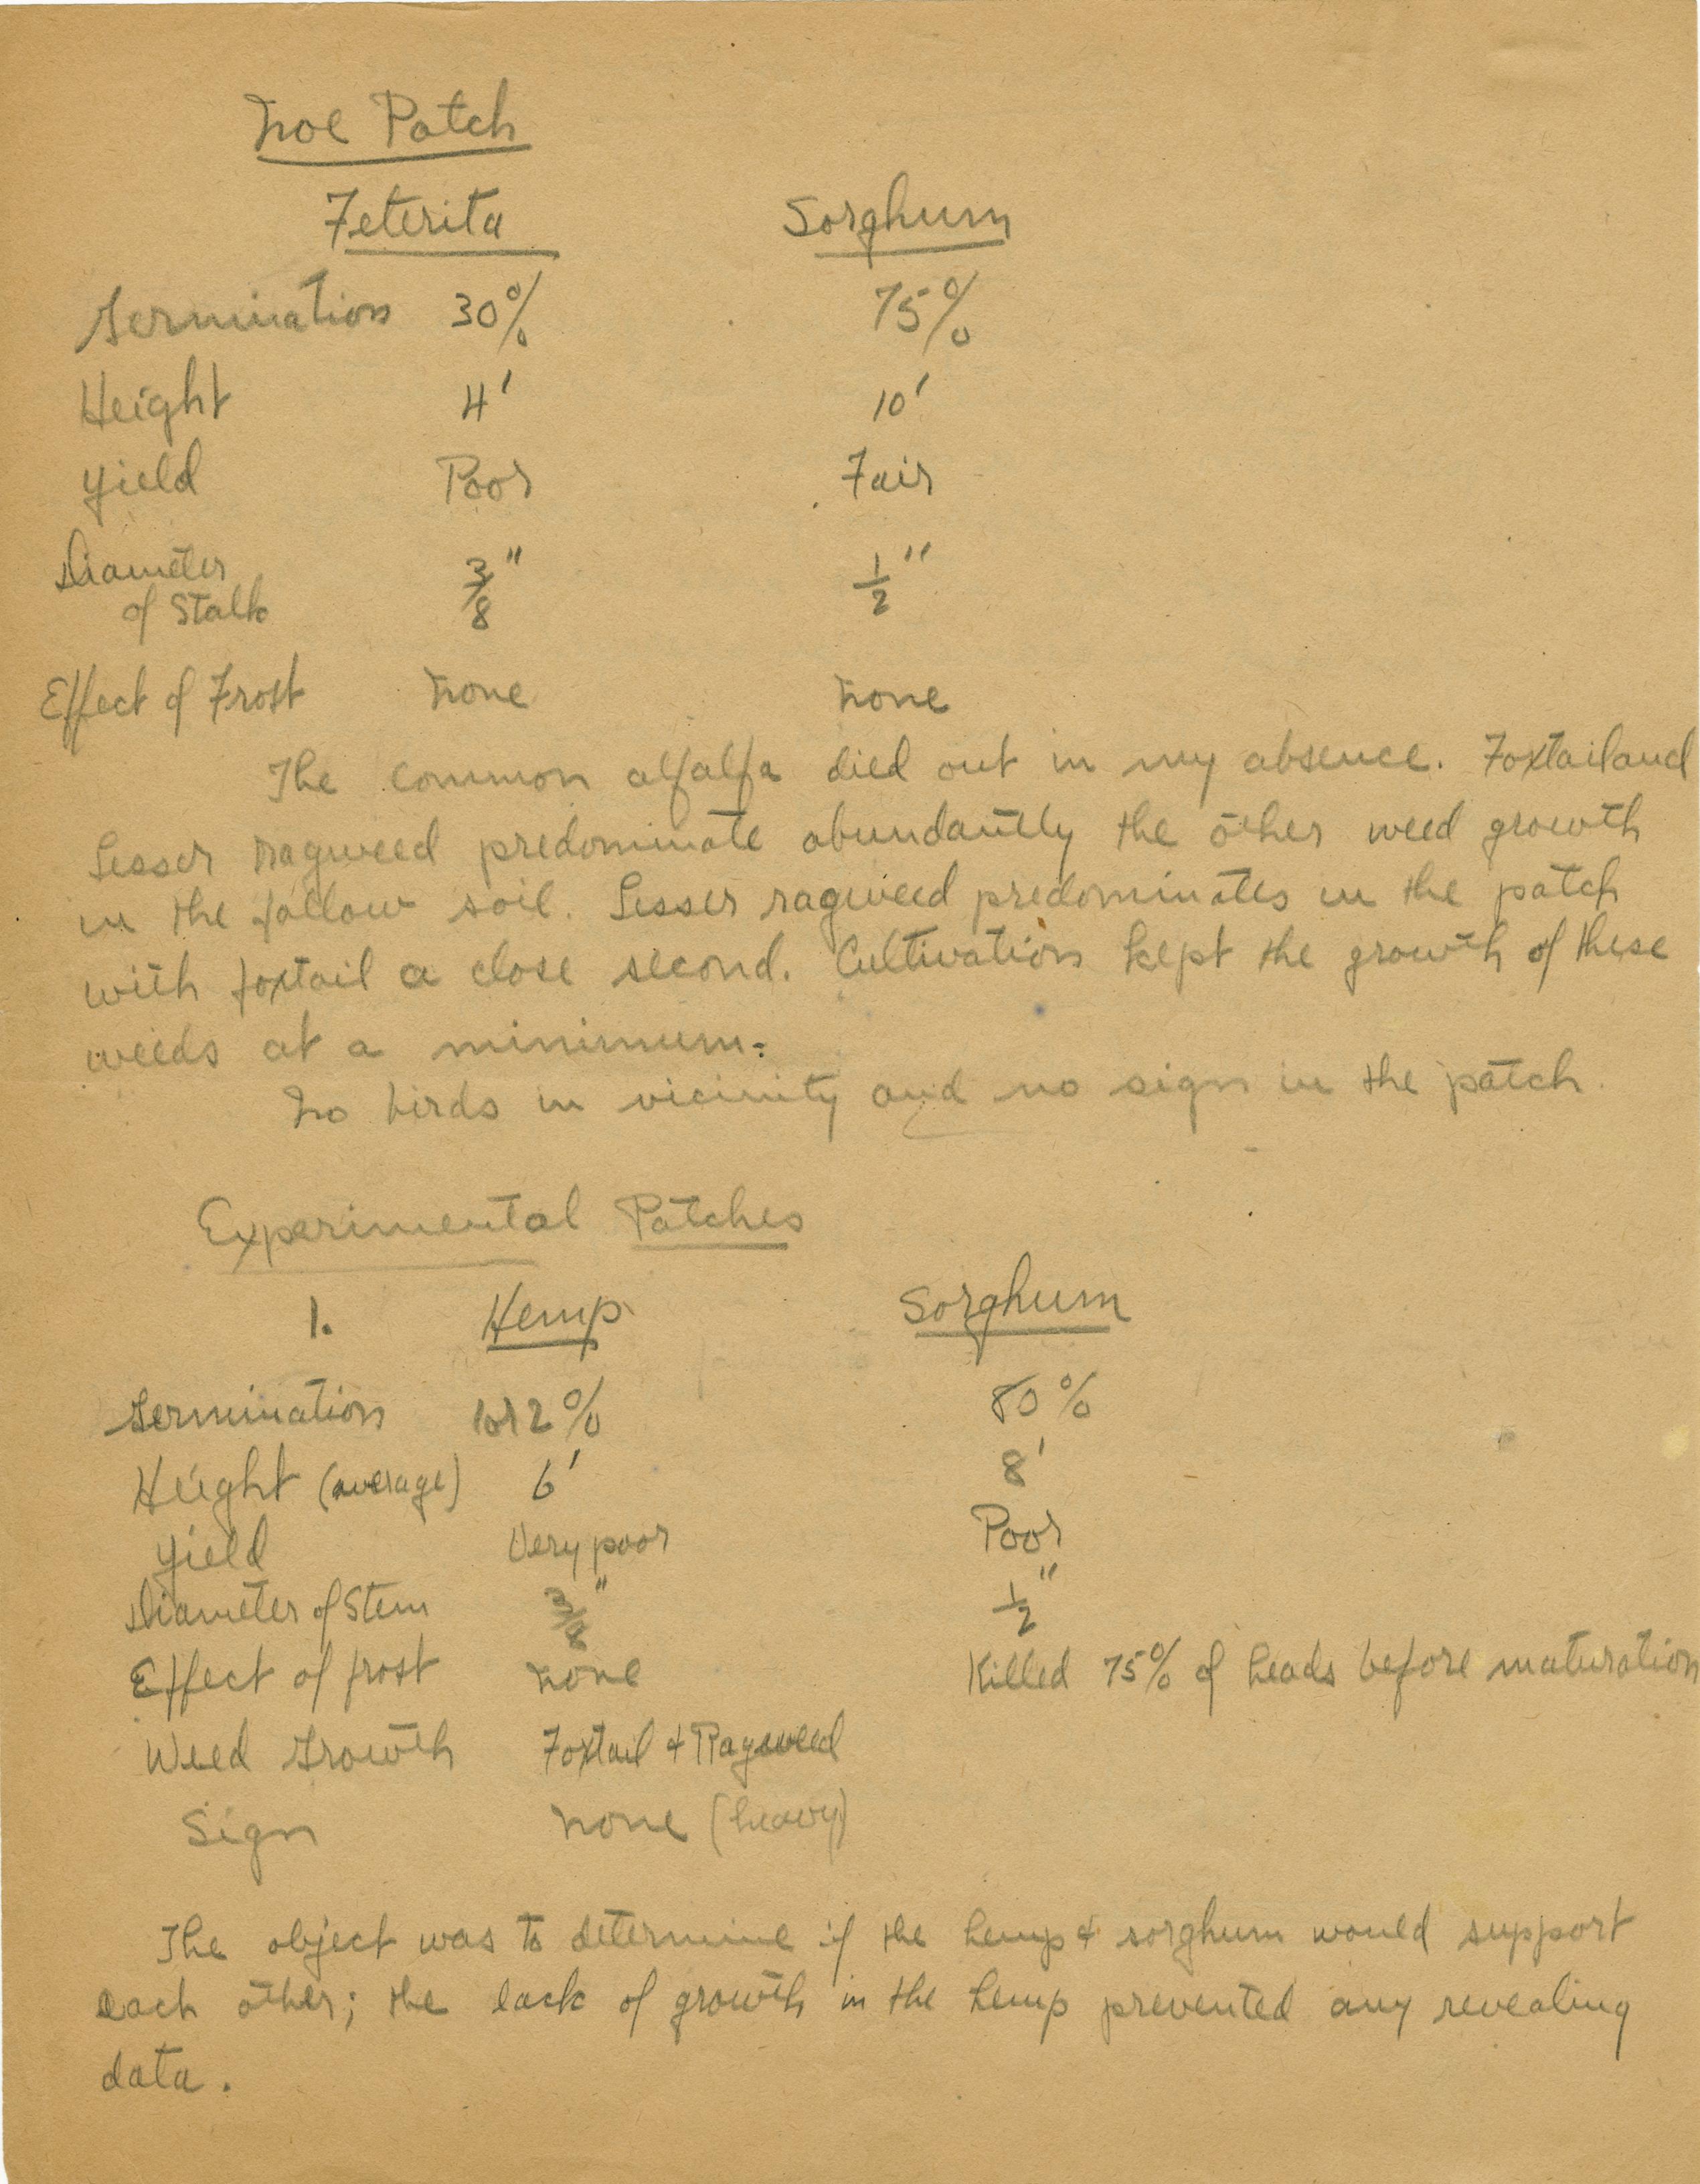 Noe Patch
Feterita Sorghum
Germination 30% 75%
Height 4' 10'
Yield Poor Fair
Diameter
of Stalk 3/8" 1/2"
Effect of Frost None None
The common alfalfa died out in my absence. Foxtail and
Lesser Ragweed predominate abundantly the other weed growth
in the fallow soil. Lesser ragweed predominates in the patch
with foxtail a close second. Cultivation kept the growth of these
weeds at a minimum.
No birds in vicinity and no sign in the patch.
Experimental Patches
1. Hemp Sorghum
Germination 1 or 2% 80%
Height (average) 6' 8'
Yield Very poor Poor
Diameter of Stem 3/8" 1/2"
Effect of frost None Killed 75% of heads before maturation
Weed Growth Foxtail & Ragweed
Sign None (heavy)
The object was to determine if the hemp & sorghum would support
each other; the lack of growth in the hemp prevented any revealing
data.